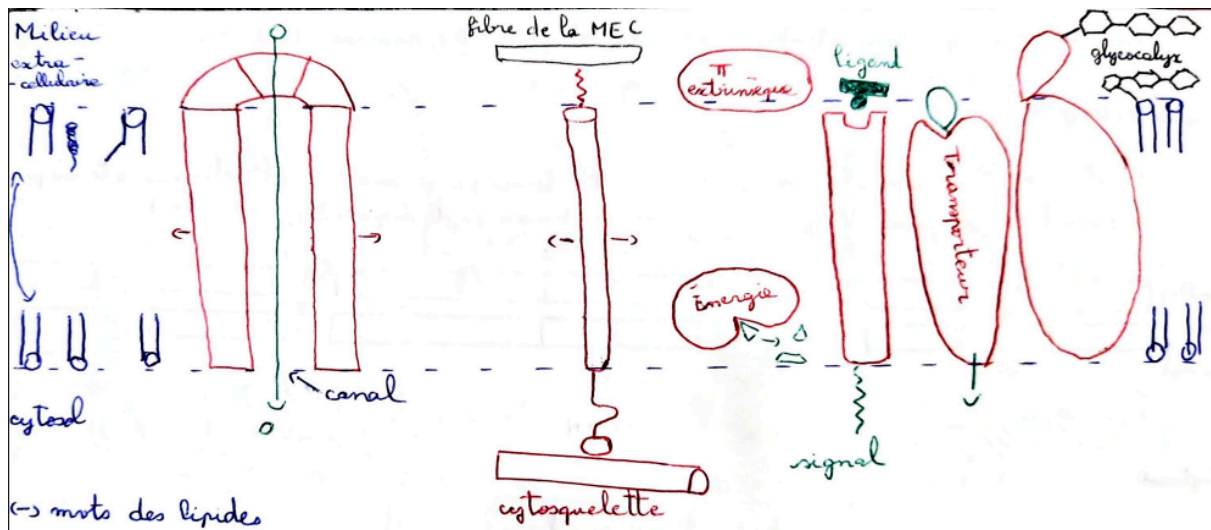 Milieu
extra-
cellulaire
fibre de la MEC
π
extrinsèque
ligand
glycocalyx
Transporteur
Énergie
canal
cytosol
signal
cytosquelette
<-> mots des lipides